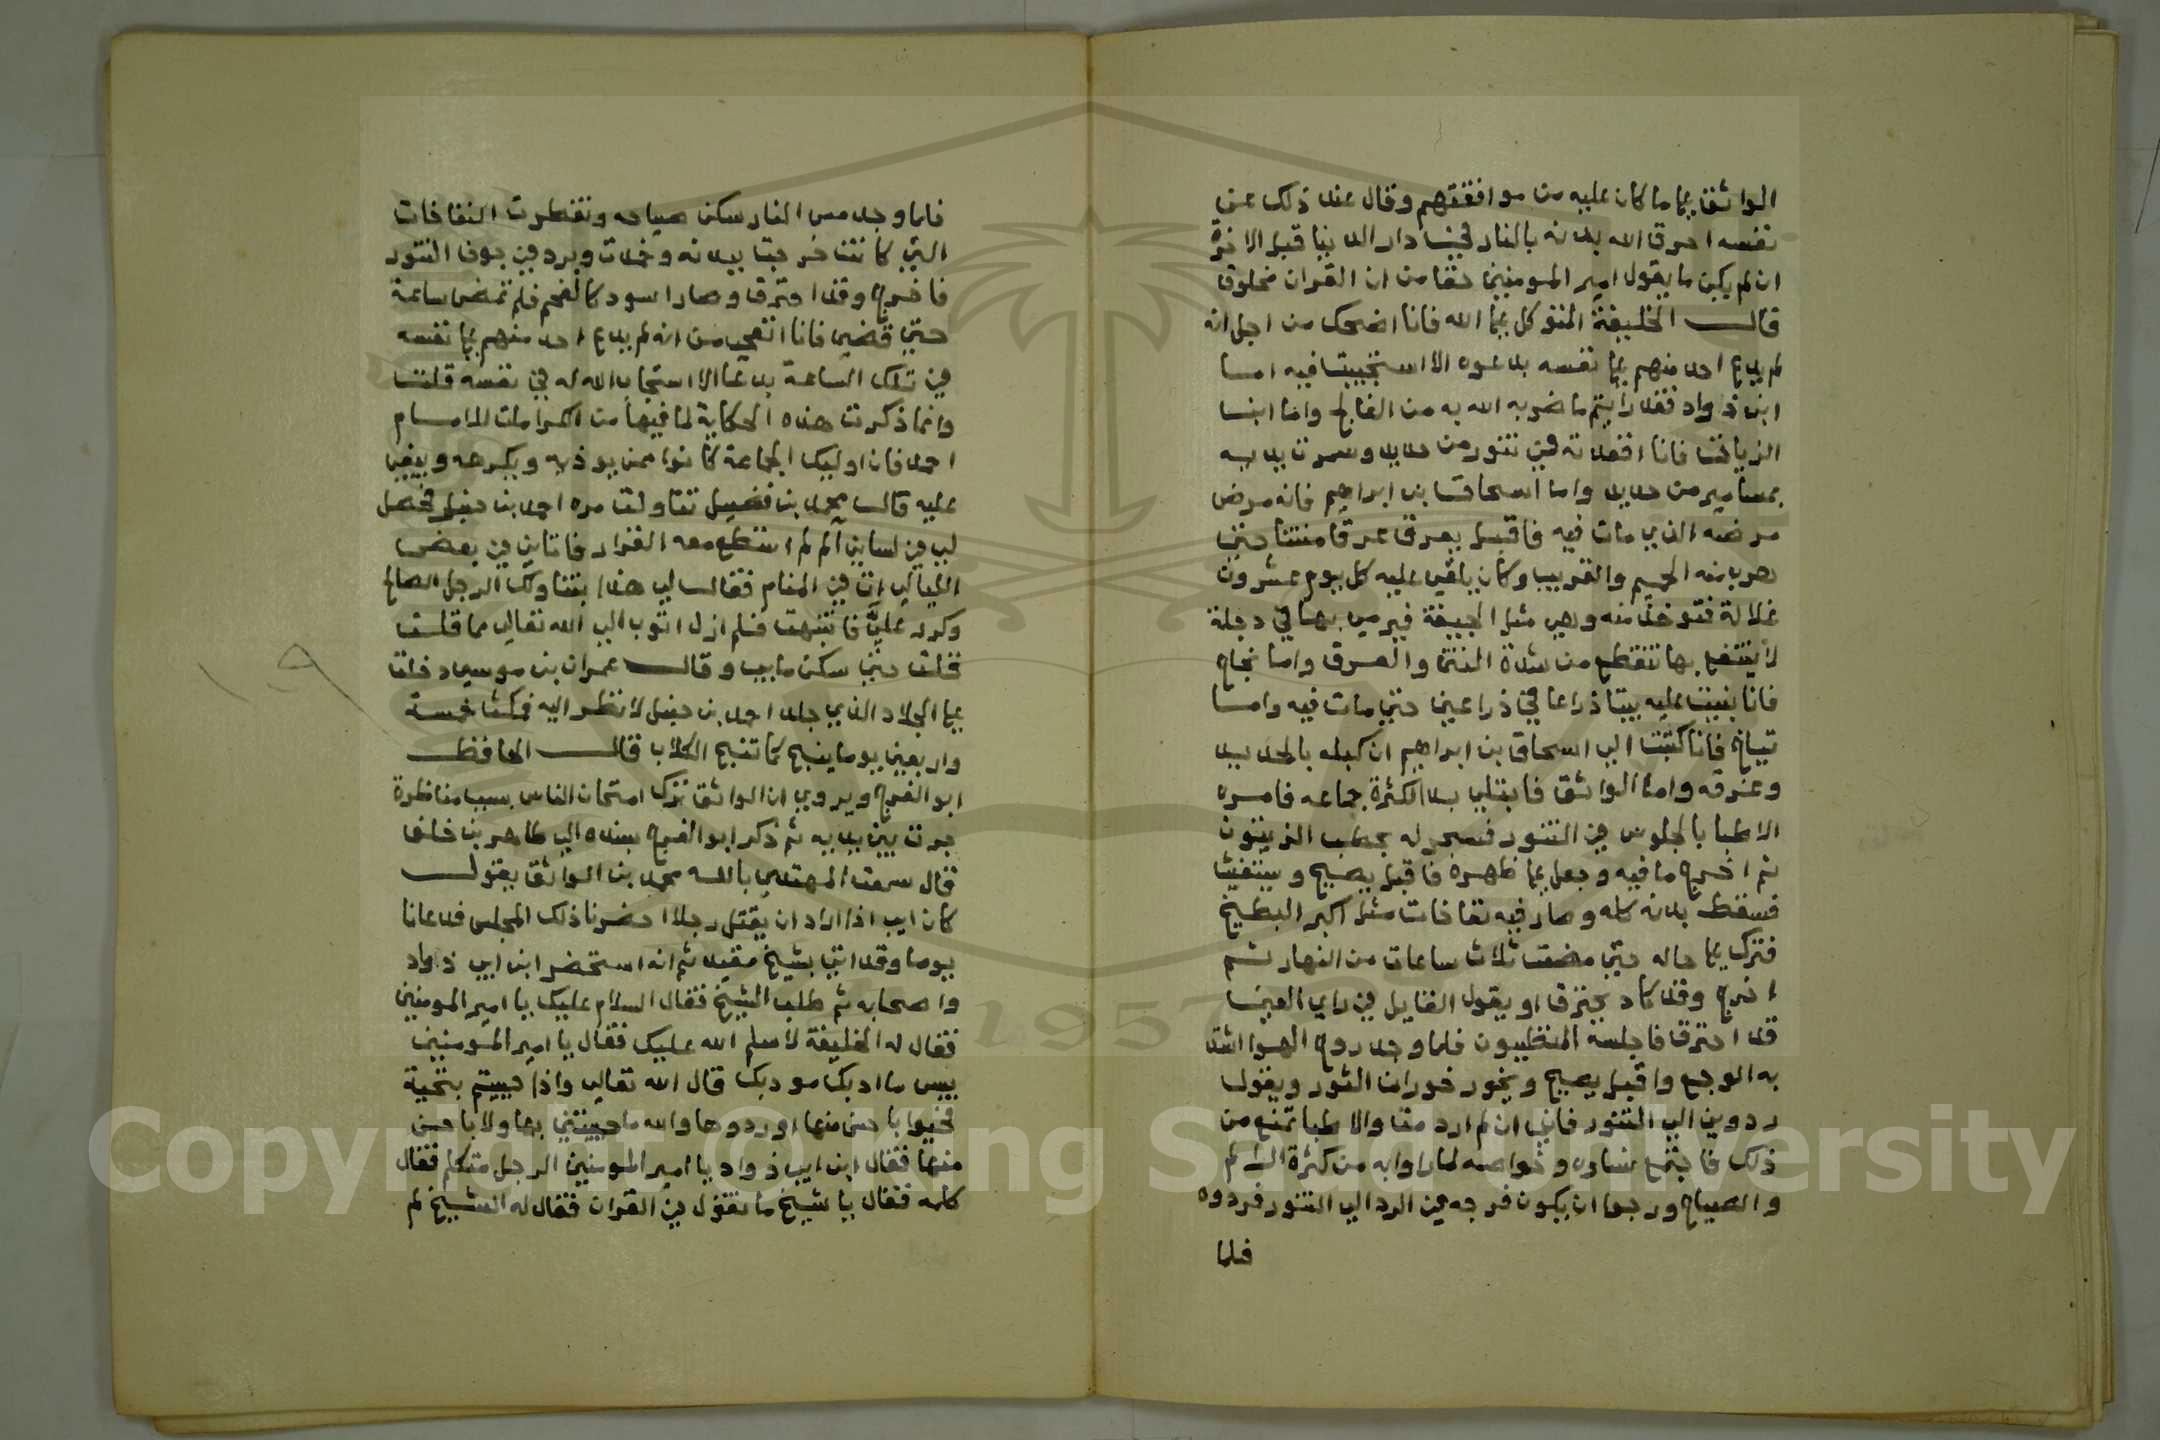 الواثق على ما كان عليه من موافقتهم وقال عند ذلك عن
نفسه احرق الله بدنه بالنار في دار الدنيا قبل الاخرة
ان لم يكن ما يقول امير المومنين حقا من ان القران مخلوق
قال الخليفة المتوكل على الله فانا اضحك من اجل انه
لم يدع احد منهم على نفسه بدعوه الا استجيبت فيه اما
ابن ذواد فقد رايتم ما ضربه الله به من الفالج واما ابن
الزيات فانا اقعدته في تنور من حديد وسمرت يديه
بمسامير من حديد واما اسحاق بن ابراهيم فانه مرض
مرضه الذي مات فيه فاقبل يعرق عرقا منتنا حتى
هرب منه الحميم والقريب وكان يلقى عليه كل يوم عشرون
غلالة فتوخذ منه وهي مثل الجيفة فيرمى بها في دجلة
لا ينتفع بها تتقطع من شدة النتن والعرق واما نجاح
فانا بنيت عليه بيتا ذراعا في ذراعين حتى مات فيه واما
تياخ فانا كتبت الى اسحاق بن ابراهيم ان كبله بالحديد
وغرقه واما الواثق فابتلي بداء لكثرة جماعه فامره
الاطبا بالجلوس في التنور فسجر له بحطب الزيتون
ثم اخرج ما فيه وجعل على ظهره فاقبل يصيح ويستغيث
فسقط بدنه كله وصار فيه نفاخات مثل اكبر البطيخ
فترك على حاله حتى مضت ثلاث ساعات من النهار ثم
اخرج وقد كاد يحترق او يقول القايل في راي العين
قد احترق فاجلسه المتطببون فلما وجد روح الهوا اشتد
به الوجع واقبل يصيح ويخور خوران الثور ويقول
ردوني الى التنور فاني ان لم ارد مت والاطبا تمنع من
ذلك فاجتمع نساوه وخواصه لما راوا به من كثرة الالم
والصياح ورجوا ان يكون فرجه في الرد الى التنور فردوه
فلما
فلما وجد مس النار سكن صياحه وتفطرت النفاخات
التي كانت خرجت ببدنه وخمدت وبرد في جوف التنور
فاخرج وقد احترق وصار اسود كالفحم فلم تمض ساعة
حتى قضى فانا اتعجب من انه لم يدع احد منهم على نفسه
في تلك الساعة بدعا الا استجاب الله له في نفسه قلت
وانما ذكرت هذه الحكاية لما فيها من الكرامات للامام
احمد فان اوليك الجماعة كانوا ممن يوذيه ويكرهه ويبغي
عليه قال محمد بن فضيل تناولت مره احمد بن حنبل فحصل
لي في لساني الم لم استطع معه القرار فاتاني في بعض
الليالي ات في المنام فقال لي هذا بتناولك الرجل الصالح
وكرر علي فانتبهت فلم ازل اتوب الى الله تعالى مما قلت
حتى سكن ما بي وقال عمران بن موسى دخلت
على الجلاد الذي جلد احمد بن حنبل لانظر اليه فمكث خمسة
واربعين يوما ينبح كما تنبح الكلاب قال الحافظ
ابو الفرج ويروي ان الواثق ترك امتحان الناس بسبب مناظرة
جرت بين يديه ثم ذكر ابو الفرج بسنده الى طاهر بن خلف
قال سمعت المهتدي بالله محمد بن الواثق يقول
كان ابي اذا اراد ان يقتل رجلا احضرنا ذلك المجلس فدعانا
يوما وقد اتي بشيخ مقيد ثم انه استحضر ابن ابي ذواد
واصحابه ثم طلب الشيخ فقال السلام عليك يا امير المومنين
فقال له الخليفة لا سلم الله عليك فقال يا امير المومنين
بيس ما ادبك مودبك قال الله تعالى واذا حييتم بتحية
فحيوا باحسن منها او ردوها والله ما حييتني بها ولا باحسن
منها فقال ابن ابي ذواد يا امير المومنين الرجل متكلم فقال
كلمه فقال يا شيخ ما تقول في القران فقال له الشيخ لم
١٩
1957
Copyright © King Saud University